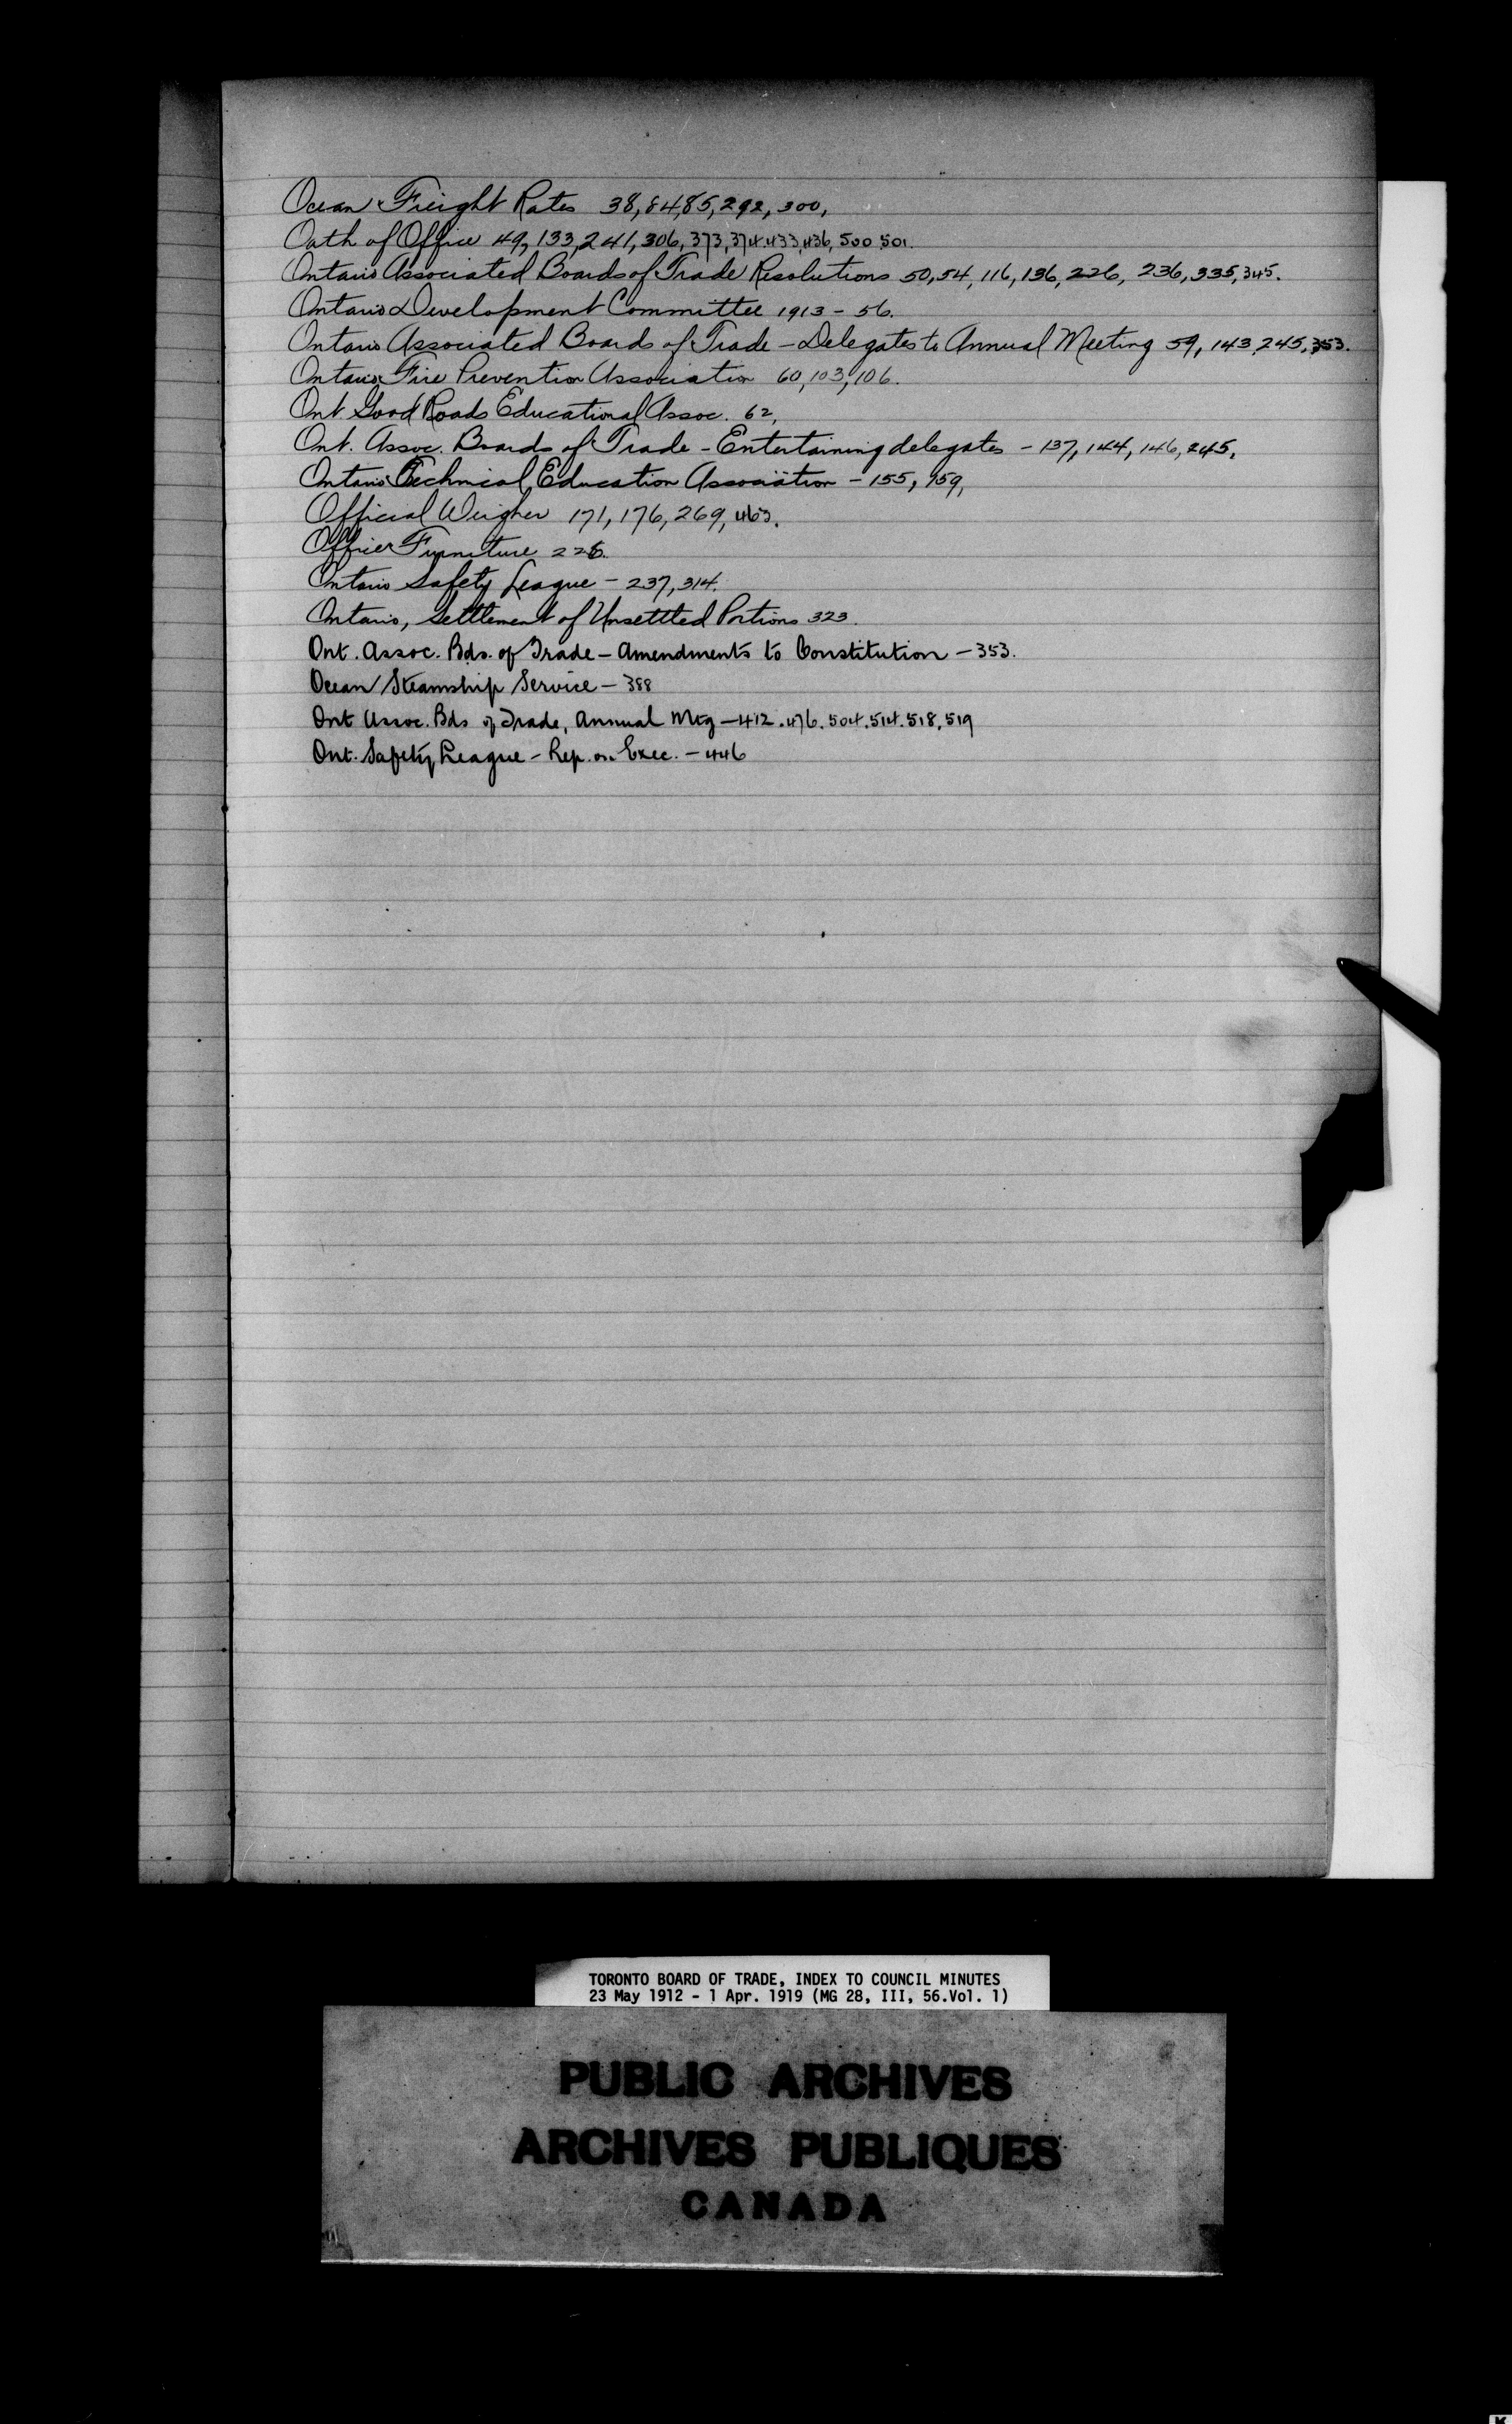 Ocean Freight Rates 38,84,85,292,300,
Oath of Office 49,133,241,306,373,374.433,436,500.501.
Ontario Associated Boards of Trade Resolutions 50,54,116,136,226, 236,335,345.
Ontario Development Committee 1913 - 56.
Ontario Associated Boards of Trade - Delegates to Annual Meeting 59, 143,245,353.
Ontario Fire Prevention Association 60,103,106.
Ont. Good Roads Educational Assoc. 62,
Ont. Assoc. Boards of Trade - Entertaining delegates - 137,144,146,245.
Ontario Technical Education Association - 155, 159,
Official Weigher 171,176,269,463.
Office Furniture 226.
Ontario Safety League - 237,314.
Ontario, Settlement of Unsettled Portions 323.
Ont. Assoc. Bds. of Trade - Amendments to Constitution - 353.
Ocean Steamship Service - 388
Ont Assoc. Bds of Trade, Annual Mtg - 412.476.504.514.518.519
Ont. Safety League - Rep. on Exec. - 446
TORONTO BOARD OF TRADE, INDEX TO COUNCIL MINUTES
23 May 1912 - 1 Apr. 1919 (MG 28, III, 56.Vol. 1)
PUBLIC ARCHIVES
ARCHIVES PUBLIQUES
CANADA